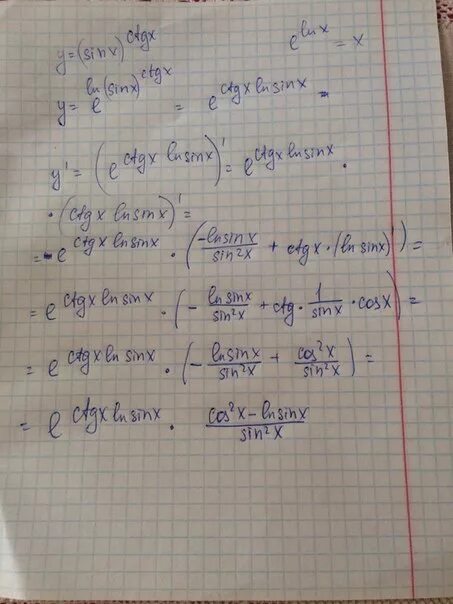 y=(sinx)^ctgx    e^lnx = x
y= e^ln(sinx)^ctgx = e^ctgx lnsinx =
y' = (e^ctgx lnsinx)' = e^ctgx lnsinx ·
· (ctgx lnsinx)' =
= e^ctgx lnsinx · (-lnsinx/sin²x + ctgx·(lnsinx)') =
= e^ctgx lnsinx · (- lnsinx/sin²x + ctg · 1/sinx · cosx) =
= e^ctgx lnsinx · (- lnsinx/sin²x + cos²x/sin²x) =
= e^ctgx lnsinx · cos²x - lnsinx/sin²x